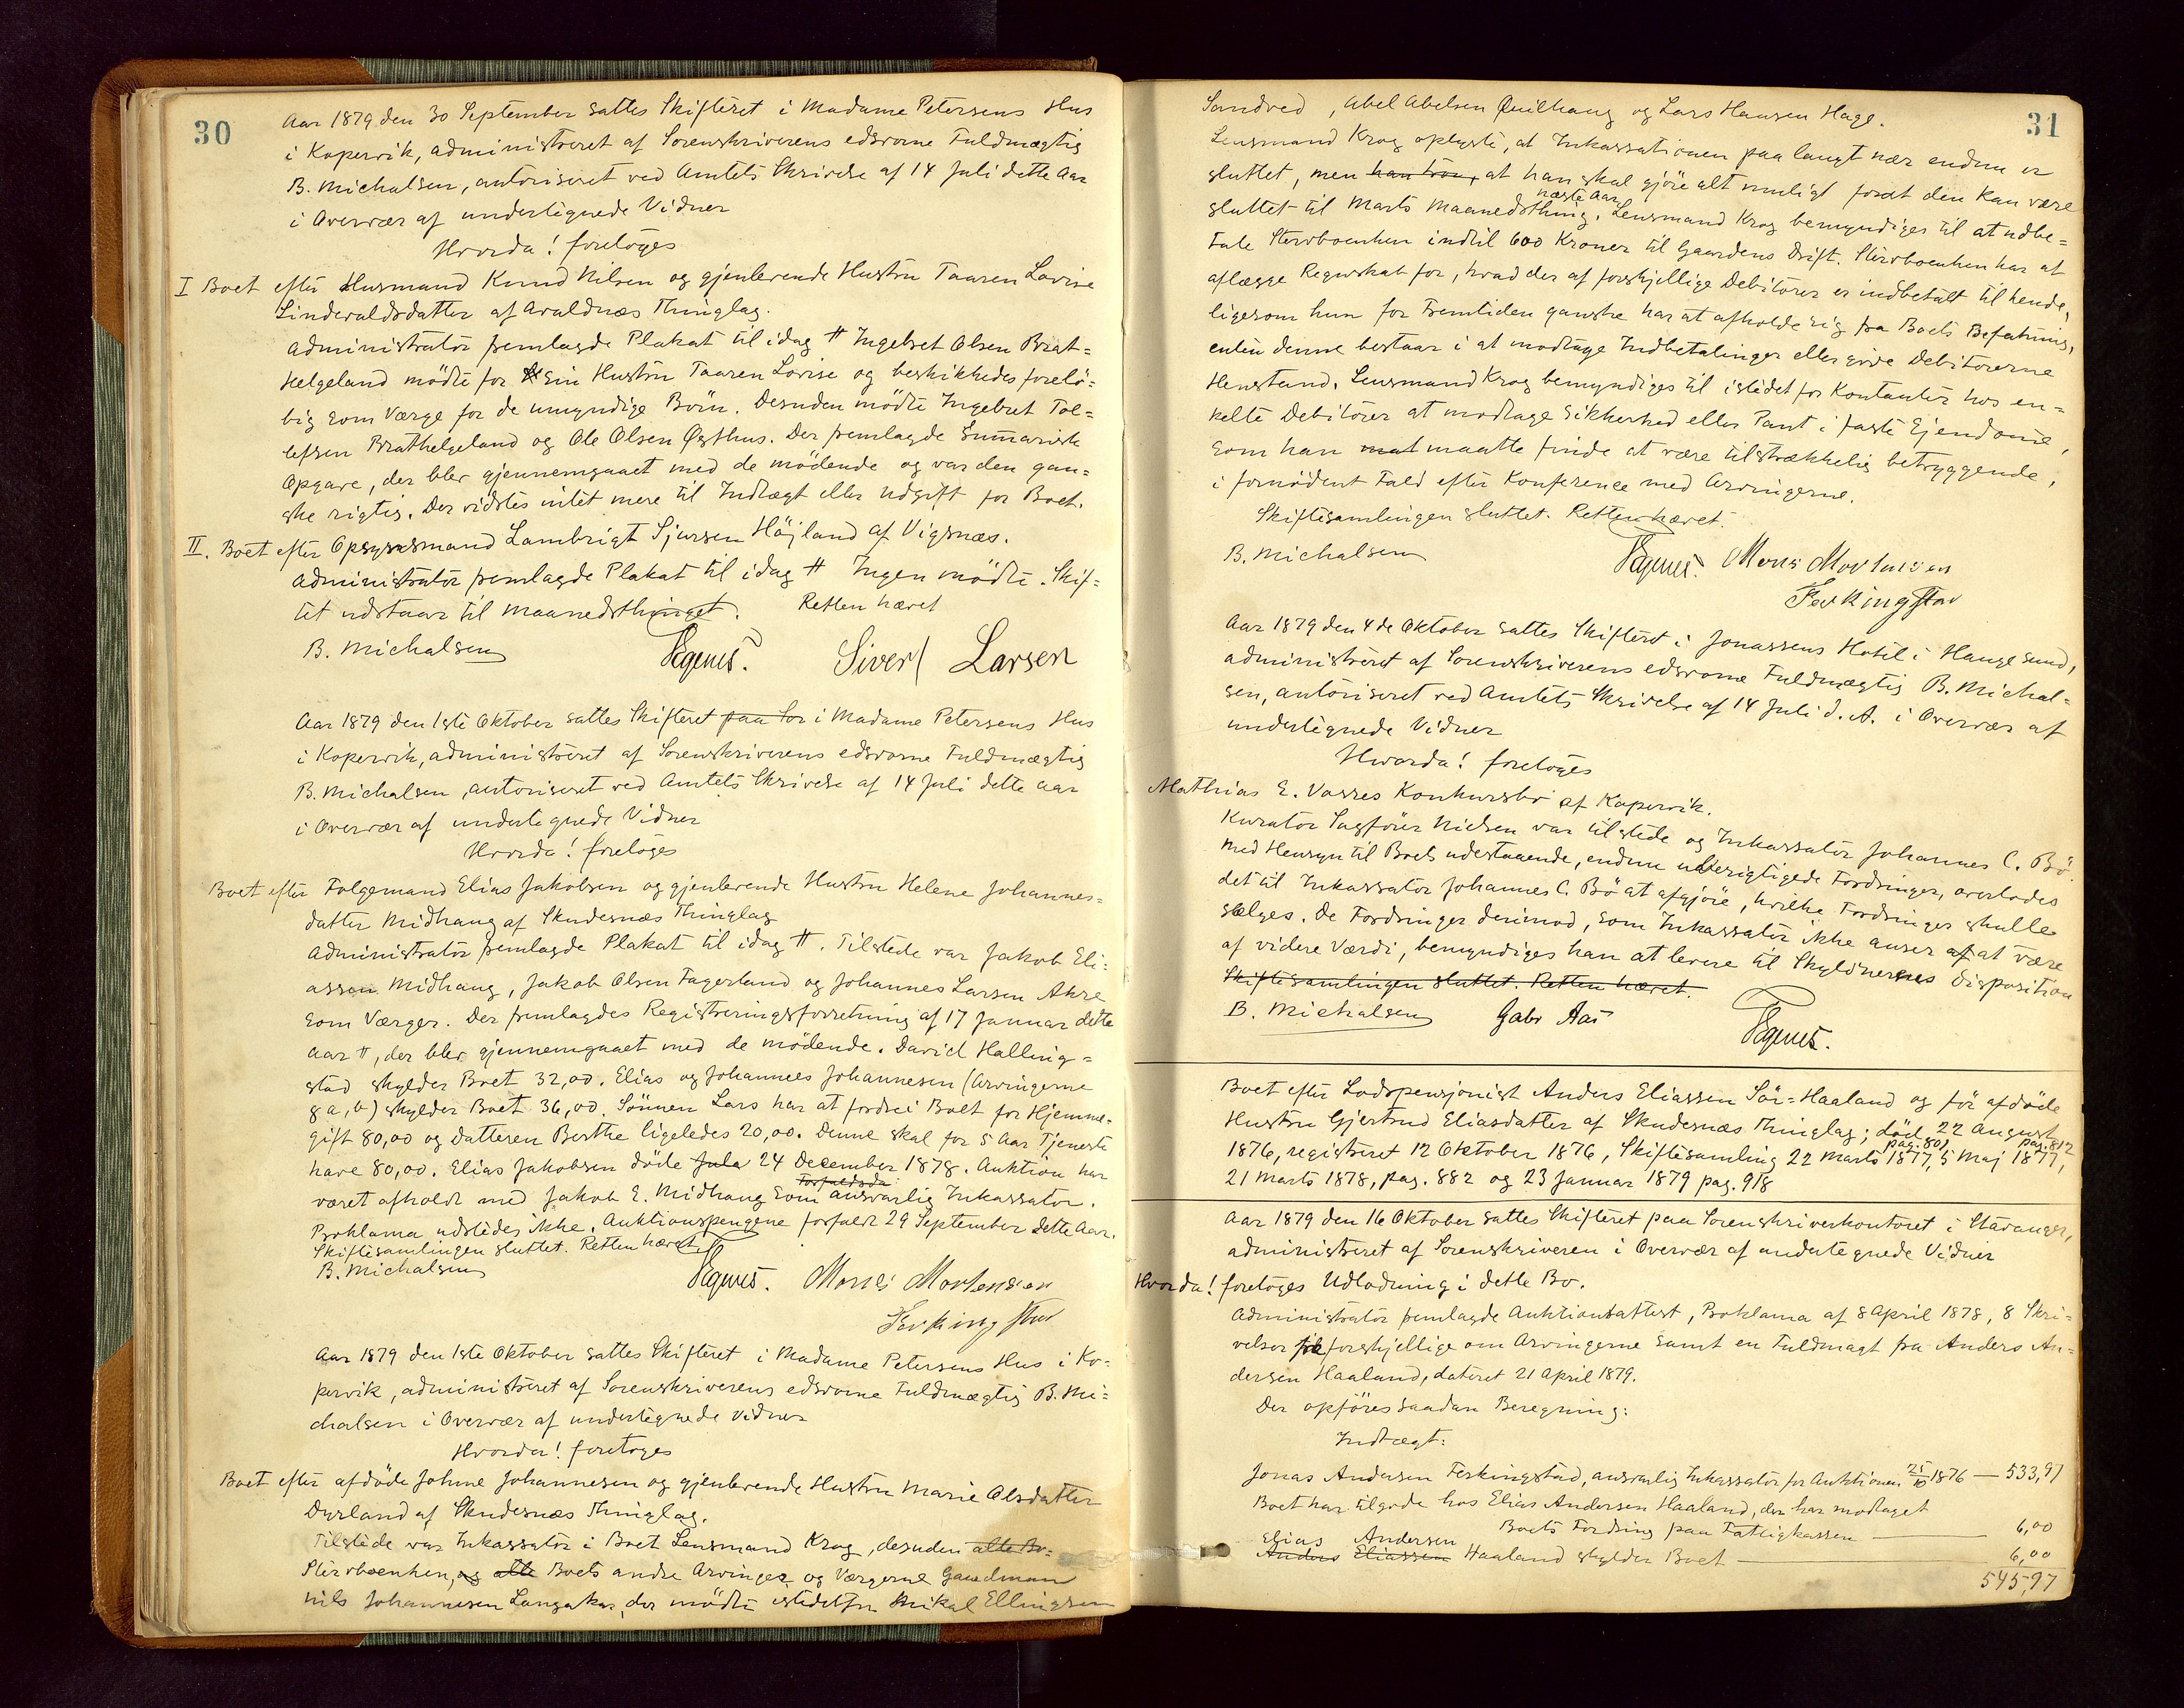 30
Aar 1879 den 30 September sattes Skifteret i Madame Petersens Hus
i Kopervik, administreret af Sorenskriverens edsvorne Fuldmægtig
B. Michalsen, autoriseret ved Amtets Skrivelse af 14 Juli dette Aar
i Overvær af undertegnede Vidner
Hvorda! foretoges
I Boet efter Husmand Knud Nilsen og gjenlevende Hustru Taaren Lovise
Linderaldsdatter af Avaldsnæs Thinglag.
Administrator fremlagde Plakat til idag # Ingebret Olsen Brat=
Helgeland mödte for Sin Hustru Taaren Lovise og beskikkedes forelö=
big som Værge for de umyndige Börn. Desuden mödte Ingebret Tol=
lefsen Brathelgeland og Ole Olsen Østhus. Der fremlagde Summarisk
Opgave, der blev gjennemgaaet med de mödende og var den gan=
ske rigtig. Der vidstes intet mere til Indtægt eller Udgift for Boet.
II. Boet efter Opsynsmand Lambrigt Sjursen Höjland af Vigsnæs.
Administrator fremlagde Plakat til idag # Ingen mödte. Skif=
tet udstaar til Maanedsthinget. Retten hævet
B. Michalsen Sivert Larsen
Aar 1879 den 1ste Oktober sattes Skifteret paa Sor i Madame Petersens Hus
i Kopervik, administreret af Sorenskriverens edsvorne Fuldmægtig
B. Michalsen, autoriseret ved Amtets Skrivelse af 14 Juli dette Aar
i Overvær af undertegnede Vidner
Hvorda! foretoges
Boet efter Folgemand Elias Jakobsen og gjenlevende Hustru Helene Johannes=
datter Midhaug af Skudesnæs Thinglag
Administrator fremlagde Plakat til idag #. Tilstede var Jakob Eli=
assen Midhaug, Jakob Olsen Fagerland og Johannes Larsen Ahre
som Værger. Der fremlagdes Registreringsforretning af 17 Januar dette
Aar #, der blev gjennemgaaet med de mödende. David Halling=
stad skylder Boet 32,00. Elias og Johannes Johannesen (Arvingerne
8 a, b) skylder Boet 36,00. Sönnen Lars har at fordre i Boet for Hjemme=
gift 80,00 og datteren Berthe ligeledes 20,00. Denne skal for 5 Aar Tjeneste
have 80,00. Elias Jakobsen döde Jula 24 December 1878. Auktion har
Forfaldsda
været afholdt med Jakob E. Midhaug som ansvarlig Inkassator.
Proklama udstedes ikke. Auktionspengene forfaldt 29 September dette Aar.
Skiftesamlingen sluttet. Retten hævet.
B. Michalsen Mons Mortensen
Ferkingstad
Aar 1879 den 1ste Oktober sattes Skifteret i Madame Petersens Hus i Ko=
pervik, administreret af Sorenskriverens edsvorne Fuldmægtig B. Mi=
chalsen i Overvær af undertegnede Vidner
Hvorda! foretoges
Boet efter afdöde Johne Johannesen og gjenlevende Hustru Marie Olsdatter
Dyrland af Skudesnæs Thinglag.
Tilstede var Inkassator i Boet Lensmand Krog, desuden alle Bo=
Stervboenken, og alle Boets andre Arvinger og Værgerne Gaardmand
Nils Johannesen Langaker, der mödte istedetfor Mikal Ellingsen
31
Sandved, Abel Abelsen Quilhaug og Lars Hansen Hage.
Lensmand Krog oplyste, at Inkassationen paa langt nær endnu er
sluttet, men han tror, at han skal gjöre alt muligt forat den kan være
næste Aar
sluttet til Marts Maanedsthing. Lensmand Krog bemyndiges til at udbe=
tale Stervboenken indtil 600 Kroner til Gaardens Drift. Stervboenken har at
aflægge Regnskab for, hvad der af forskjellige Debitorer er indbetalt til hende,
ligesom hun for Fremtiden ganske har at afholde sig fra Boets Befatning,
enten denne bestaar i at modtage Indbetalinger eller give Debitorerne
Henstand. Lensmand Krog bemyndiges til istedet for Kontanter hos en=
kelte Debitorer at modtage Sikkerhed eller Pant i faste Ejendome,
som han mat maatte finde at være tilstrækkelig betryggende,
i fornödent Fald efter Konference med Arvingerne.
Skiftesamlingen sluttet. Retten hævet.
B. Michalsen Mons Mortensen
Ferkingstad
Aar 1879 den 4de Oktober sattes Skifteret i Jonassens Hotel i Haugesund,
administreret af Sorenskriverens edsvorne Fuldmægtig B. Michal=
sen, autoriseret ved Amtets Skrivelse af 14 Juli d. A. i Overvær af
undertegnede Vidner
Hvorda! foretoges
Mathias E. Vasses Konkursbo af Kopervik.
Kurator Sagförer Nielsen var tilstede og Inkassator Johannes C. Bö.
Med Hensyn til Boets udestaaende, endnu uberigtigede Fordringer, overlodes
det til Inkassator Johannes C. Bö at afgjöre, hvilke Fordringer skulle
sælges. De Fordringer derimod, som Inkassator ikke anser af at være
af videre Værdi, bemyndiges han at levere til Skyldnernes Disposition
Skiftesamlingen sluttet. Retten hævet.
B. Michalsen Gabr Aas
Boet efter Lodspensjonist Anders Eliassen Sör=Haaland og för afdöde
Hustru Gjertrud Eliasdatter af Skudesnæs Thinglag; död 22 August
pag. 801 pag. 812
1876, registreret 12 Oktober 1876, Skiftesamling 22 Marts 1877, 5 Maj 1877,
21 Marts 1878, pag. 882 og 23 Januar 1879 pag. 918
Aar 1879 den 16 Oktober sattes Skifteret paa Sorenskriverkontoret i Stavanger,
administreret af Sorenskriveren i Overvær af undertegnede Vidner
Hvorda! foretoges Udlodning i dette Bo.
Administrator fremlagde Auktionsattest, Proklama af 8 April 1878, 8 Skri=
velser fra forskjellige om Arvingerne samt en Fuldmagt fra Anders An=
dersen Haaland, dateret 21 April 1879.
Der opföres saadan Beregning:
Indtægt:
Jonas Andersen Ferkingstad, ansvarlig Inkassator for Auktionen 25/10 1876 — 533,97
Boet har tilgode hos Elias Andersen Haaland, der har modtaget
Boets Fordring paa Fattigkassen — 6,00
Elias Andersen
Anders Eliassen Haaland skylder Boet — 6,00
545,97